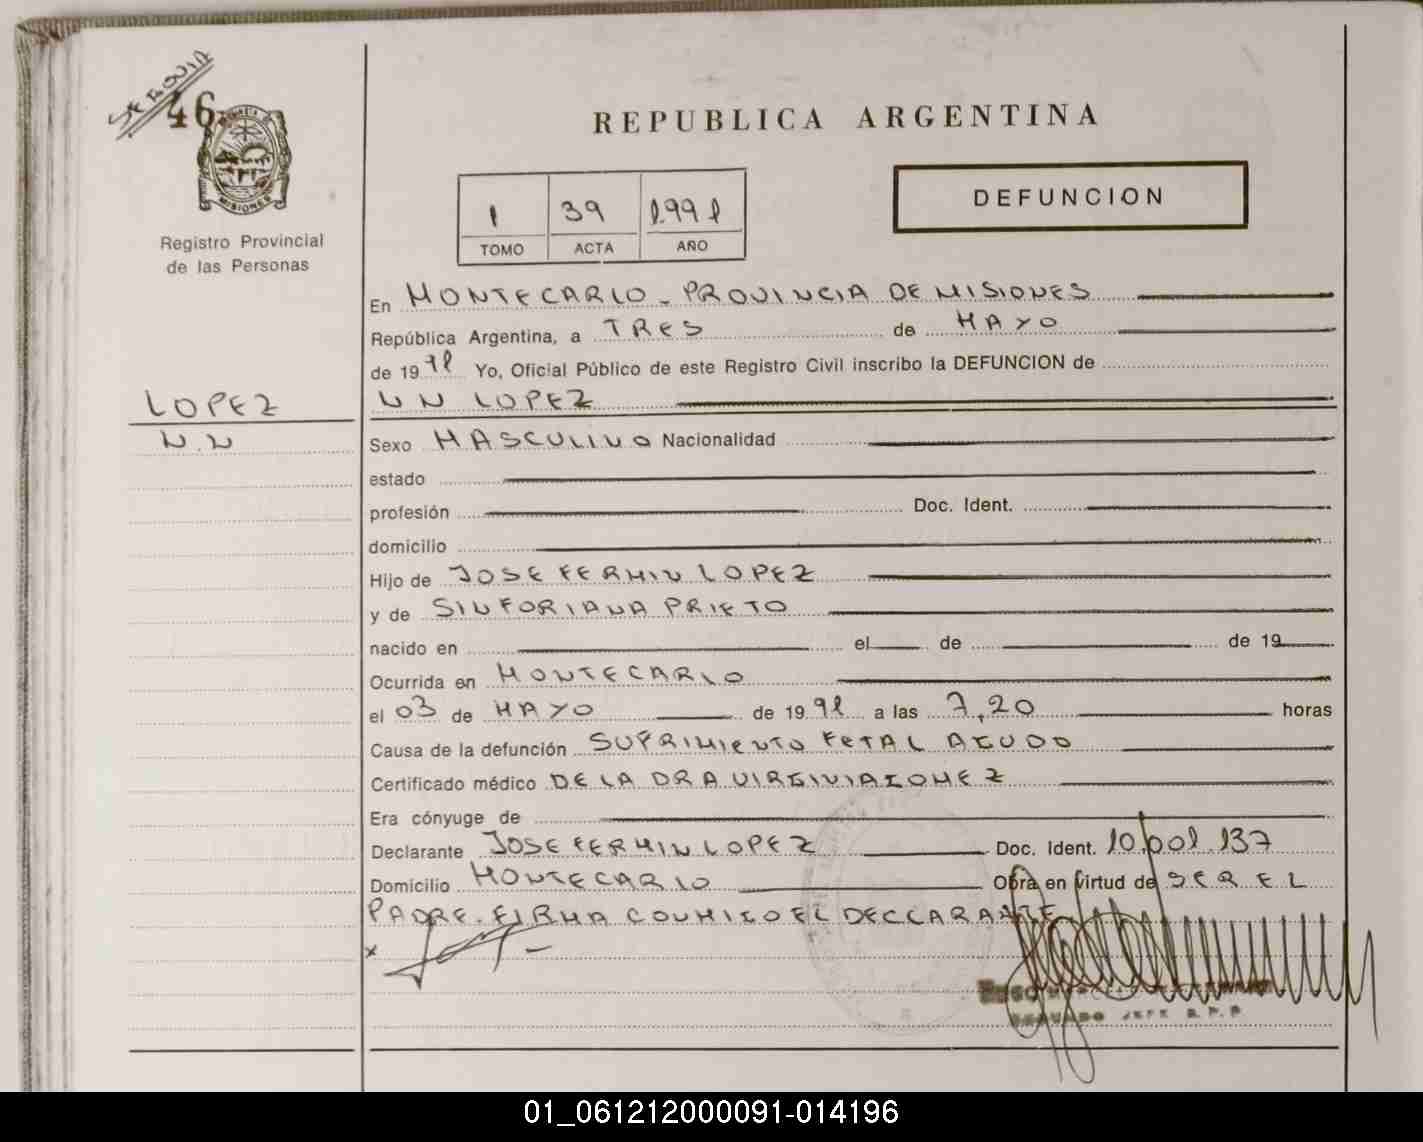 SE ROUIA
46
PROVINCIA DE
MISIONES
Registro Provincial
de las Personas
REPUBLICA ARGENTINA
1 39 1.991
TOMO ACTA AÑO
DEFUNCION
En MONTECARLO - PROVINCIA DE MISIONES
República Argentina, a TRES de MAYO
de 19 91 Yo, Oficial Público de este Registro Civil inscribo la DEFUNCION de
LOPEZ
N N LOPEZ
N.N
Sexo MASCULINO Nacionalidad
estado
profesión Doc. Ident.
domicilio
Hijo de JOSE FERMIN LOPEZ
y de SINFORIANA PRIETO
nacido en el de de 19
Ocurrida en MONTECARLO
el 03 de MAYO de 19 91 a las 7,20 horas
Causa de la defunción SUFRIMIENTO FETAL AGUDO
Certificado médico DE LA DRA VIRGINIA GOMEZ
Era cónyuge de
Declarante JOSE FERMIN LOPEZ Doc. Ident. 10.001.137
Domicilio MONTECARLO Obra en virtud de SER EL
PADRE. FIRMA CONMIGO EL DECLARANTE
x
SEGUNDO JEFE R.P.P
01_061212000091-014196